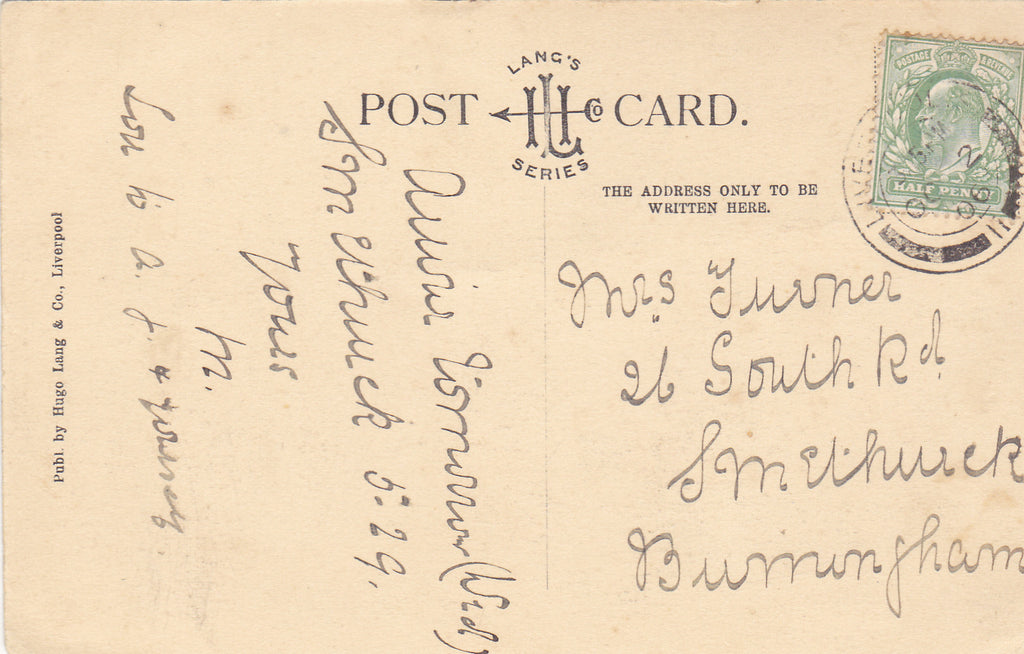 LANG'S
POST CARD.
HL Co
SERIES
THE ADDRESS ONLY TO BE
WRITTEN HERE.
POSTAGE & REVENUE
HALF PENNY
OC 2
06
Mrs Turner
26 South Rd
Smethwick
Birmingham
Arrive Tomorrow (Wed)
Smethwick 5.29.
Yours
Publ. by Hugo Lang & Co., Liverpool